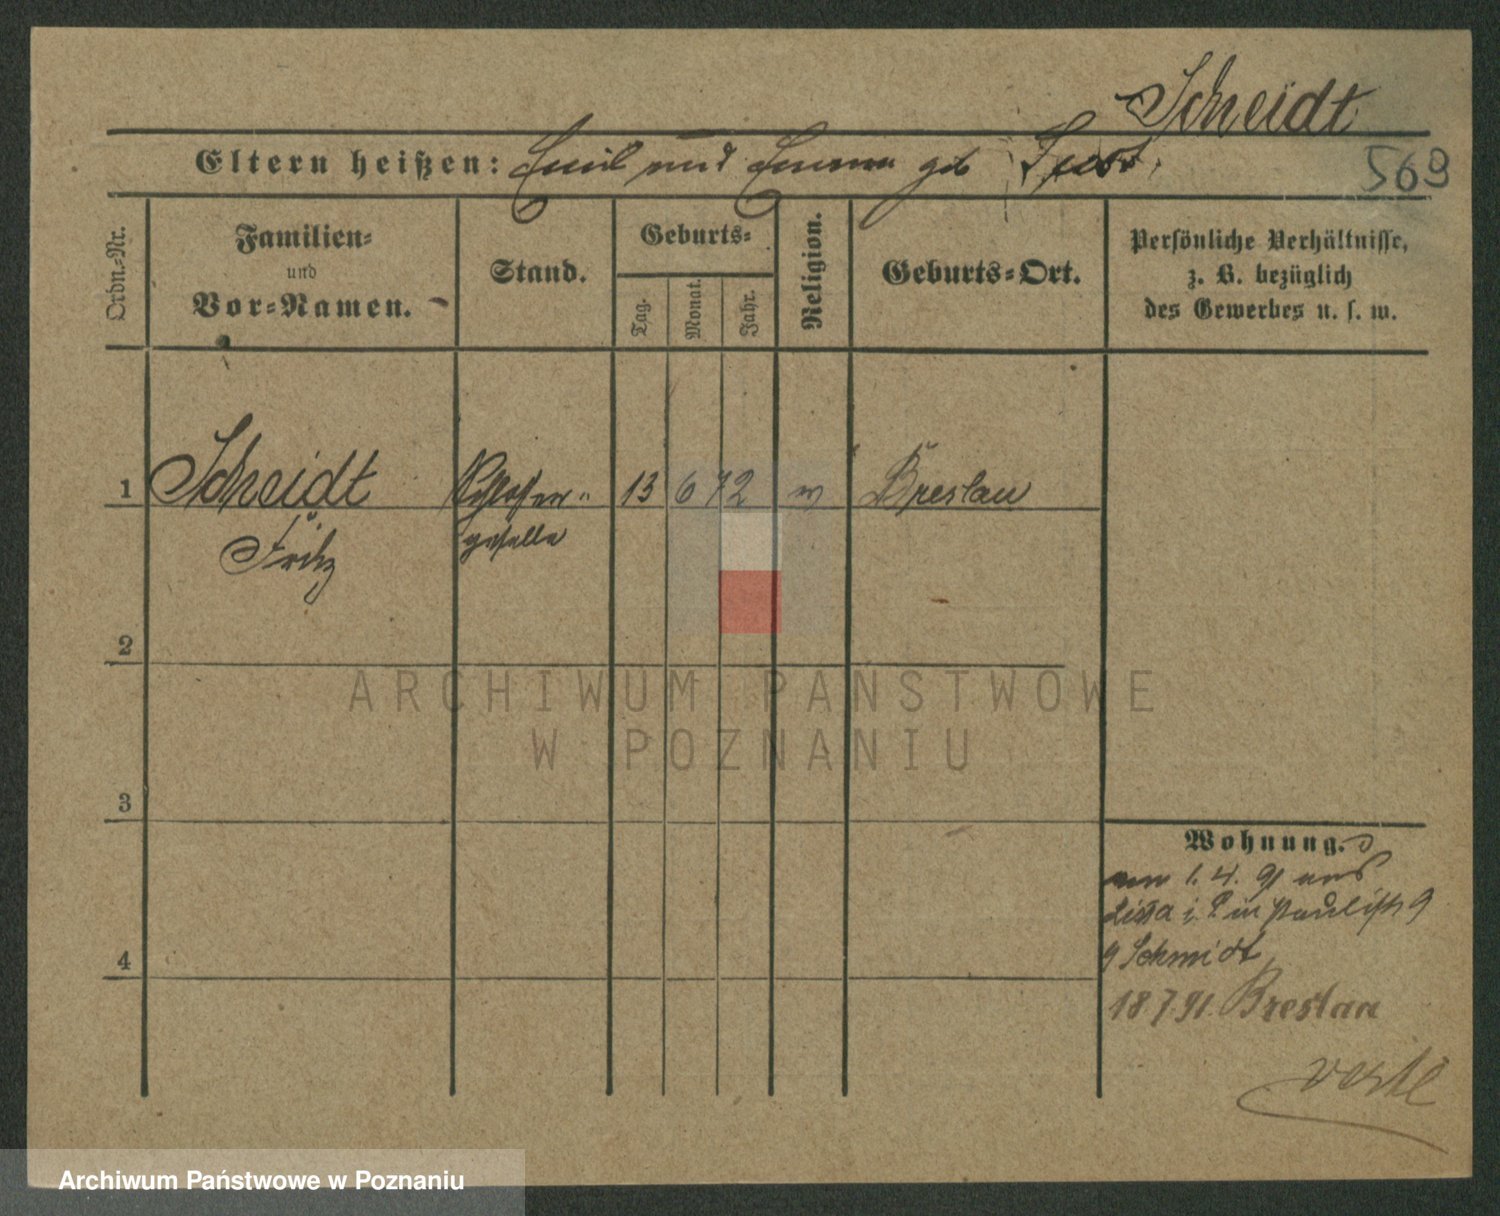 Scheidt
Eltern heißen: Emil und Emma geb
569
Ordn.-Nr.
Familien-
und
Vor-Namen.
Stand.
Geburts-
Tag.
Monat.
Jahr.
Religion.
Geburts-Ort.
Persönliche Verhältnisse,
z. B. bezüglich
des Gewerbes u. s. w.
1 Scheidt Schlosser- 13 6 72 Breslau
Fritz geselle
2
3
4
Wohnung.
1. 4. 91 aus
Lissa i. P. in Paulist 9
Schmidt
18.7.91. Breslau
ARCHIWUM PAŃSTWOWE
W POZNANIU
Archiwum Państwowe w Poznaniu